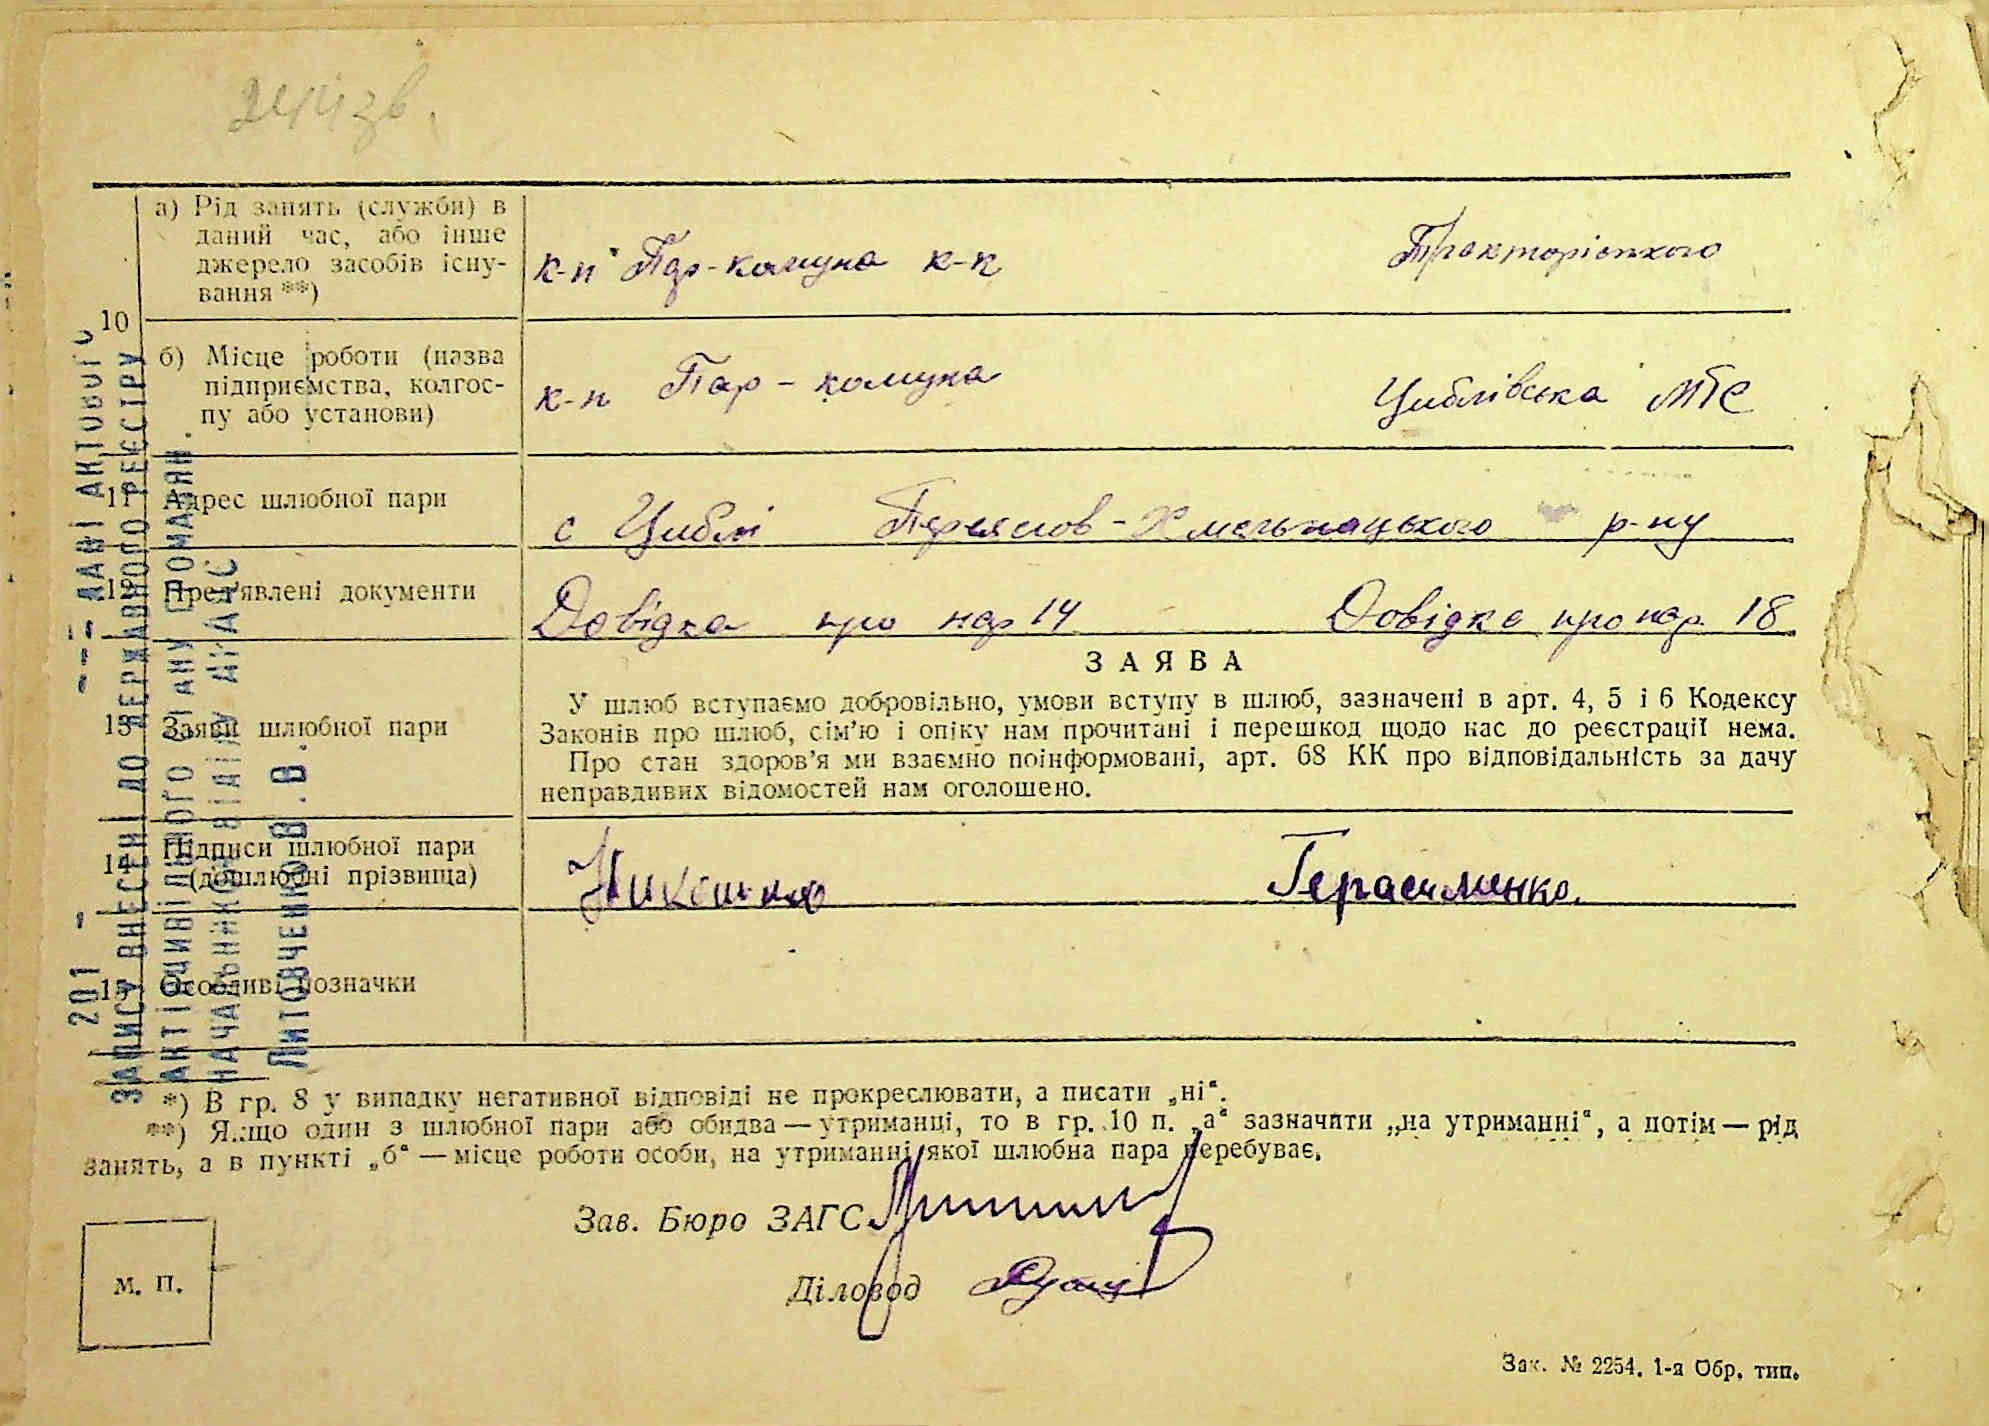 244зв.
а) Рід занять (служби) в
даний час, або інше
джерело засобів існу-
вання **)
к-п Пар-комуна к-к
Тракторіст
10
б) Місце роботи (назва
підприємства, колгос-
пу або установи)
к-п Пар-комуна
Циблівська МТС
11 Адрес шлюбної пари
с Циблі Переяслов-Хмельницького р-ну
12 Пред'явлені документи
Довідка про нар 14
Довідка про нар. 18
ЗАЯВА
13 Заяви шлюбної пари
У шлюб вступаємо добровільно, умови вступу в шлюб, зазначені в арт. 4, 5 і 6 Кодексу
Законів про шлюб, сім'ю і опіку нам прочитані і перешкод щодо нас до реєстрації нема.
Про стан здоров'я ми взаємно поінформовані, арт. 68 КК про відповідальність за дачу
неправдивих відомостей нам оголошено.
14 Підписи шлюбної пари
(дошлюбні прізвища)
Герасименко.
15 Особливі позначки
*) В гр. 8 у випадку негативної відповіді не прокреслювати, а писати „ні“.
**) Якщо один з шлюбної пари або обидва — утриманці, то в гр. 10 п. „а“ зазначити „на утриманні“, а потім — рід
занять, а в пункті „б“ — місце роботи особи, на утриманні якої шлюбна пара перебуває.
Зав. Бюро ЗАГС
Діловод
М. П.
Зак. № 2254. 1-а Обр. тип.
201 - --- ДАНІ АКТОВОГО
ЗАПИСУ ВНЕСЕНІ ДО ДЕРЖАВНОГО РЕЄСТРУ
АКТІВ ЦИВІЛЬНОГО СТАНУ ГРОМАДЯН.
НАЧАЛЬНИК ВІДДІЛУ ДРАЦС
ЛИТОВЧЕНКО В.В.